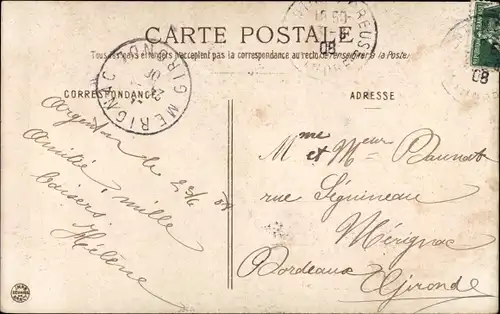 CARTE POSTALE
Tous les pays étrangers n'acceptent pas la correspondance au recto (se renseigner à la Poste)
CORRESPONDANCE
ADRESSE
MERIGNAC
GIRONDE
CREUSE
08
08
Argenton le 23/6 08
Amitié, mille
baisers
Hélène
Mme et Meur
rue Séguineau
Mérignac
Bordeaux Gironde